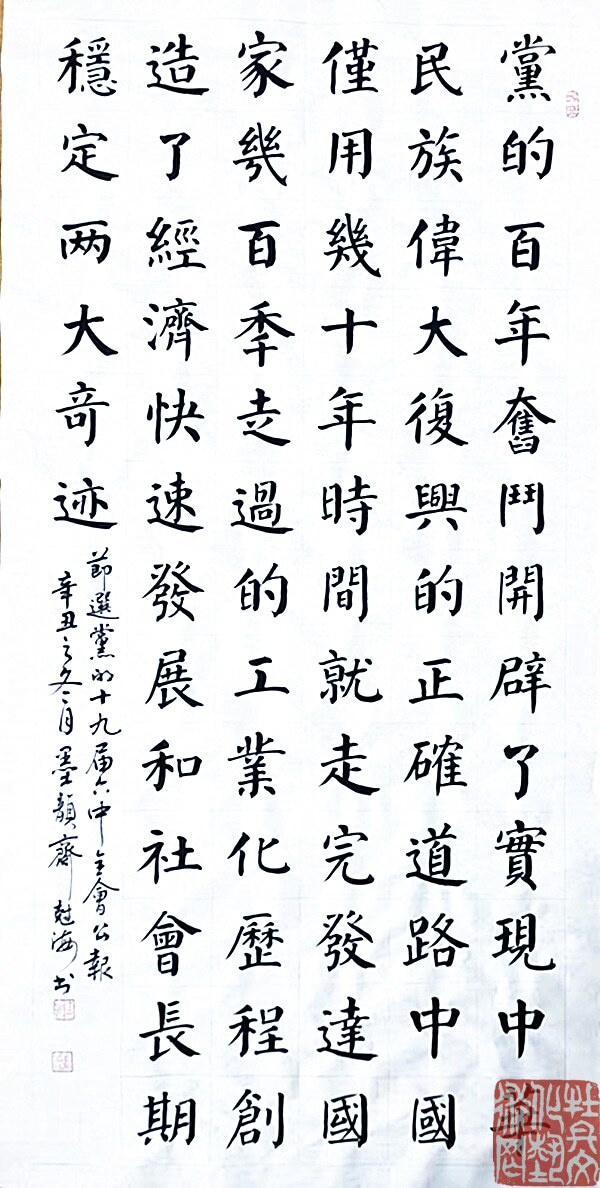 黨的百年奮鬥開辟了實現中華
民族偉大復興的正確道路中國
僅用幾十年時間就走完發達國
家㡬百秊走過的工業化歷程創
造了經濟快速發展和社會長期
穩定两大奇迹
節選黨的十九届六中全會公報
辛丑之冬月墨韻齋海书